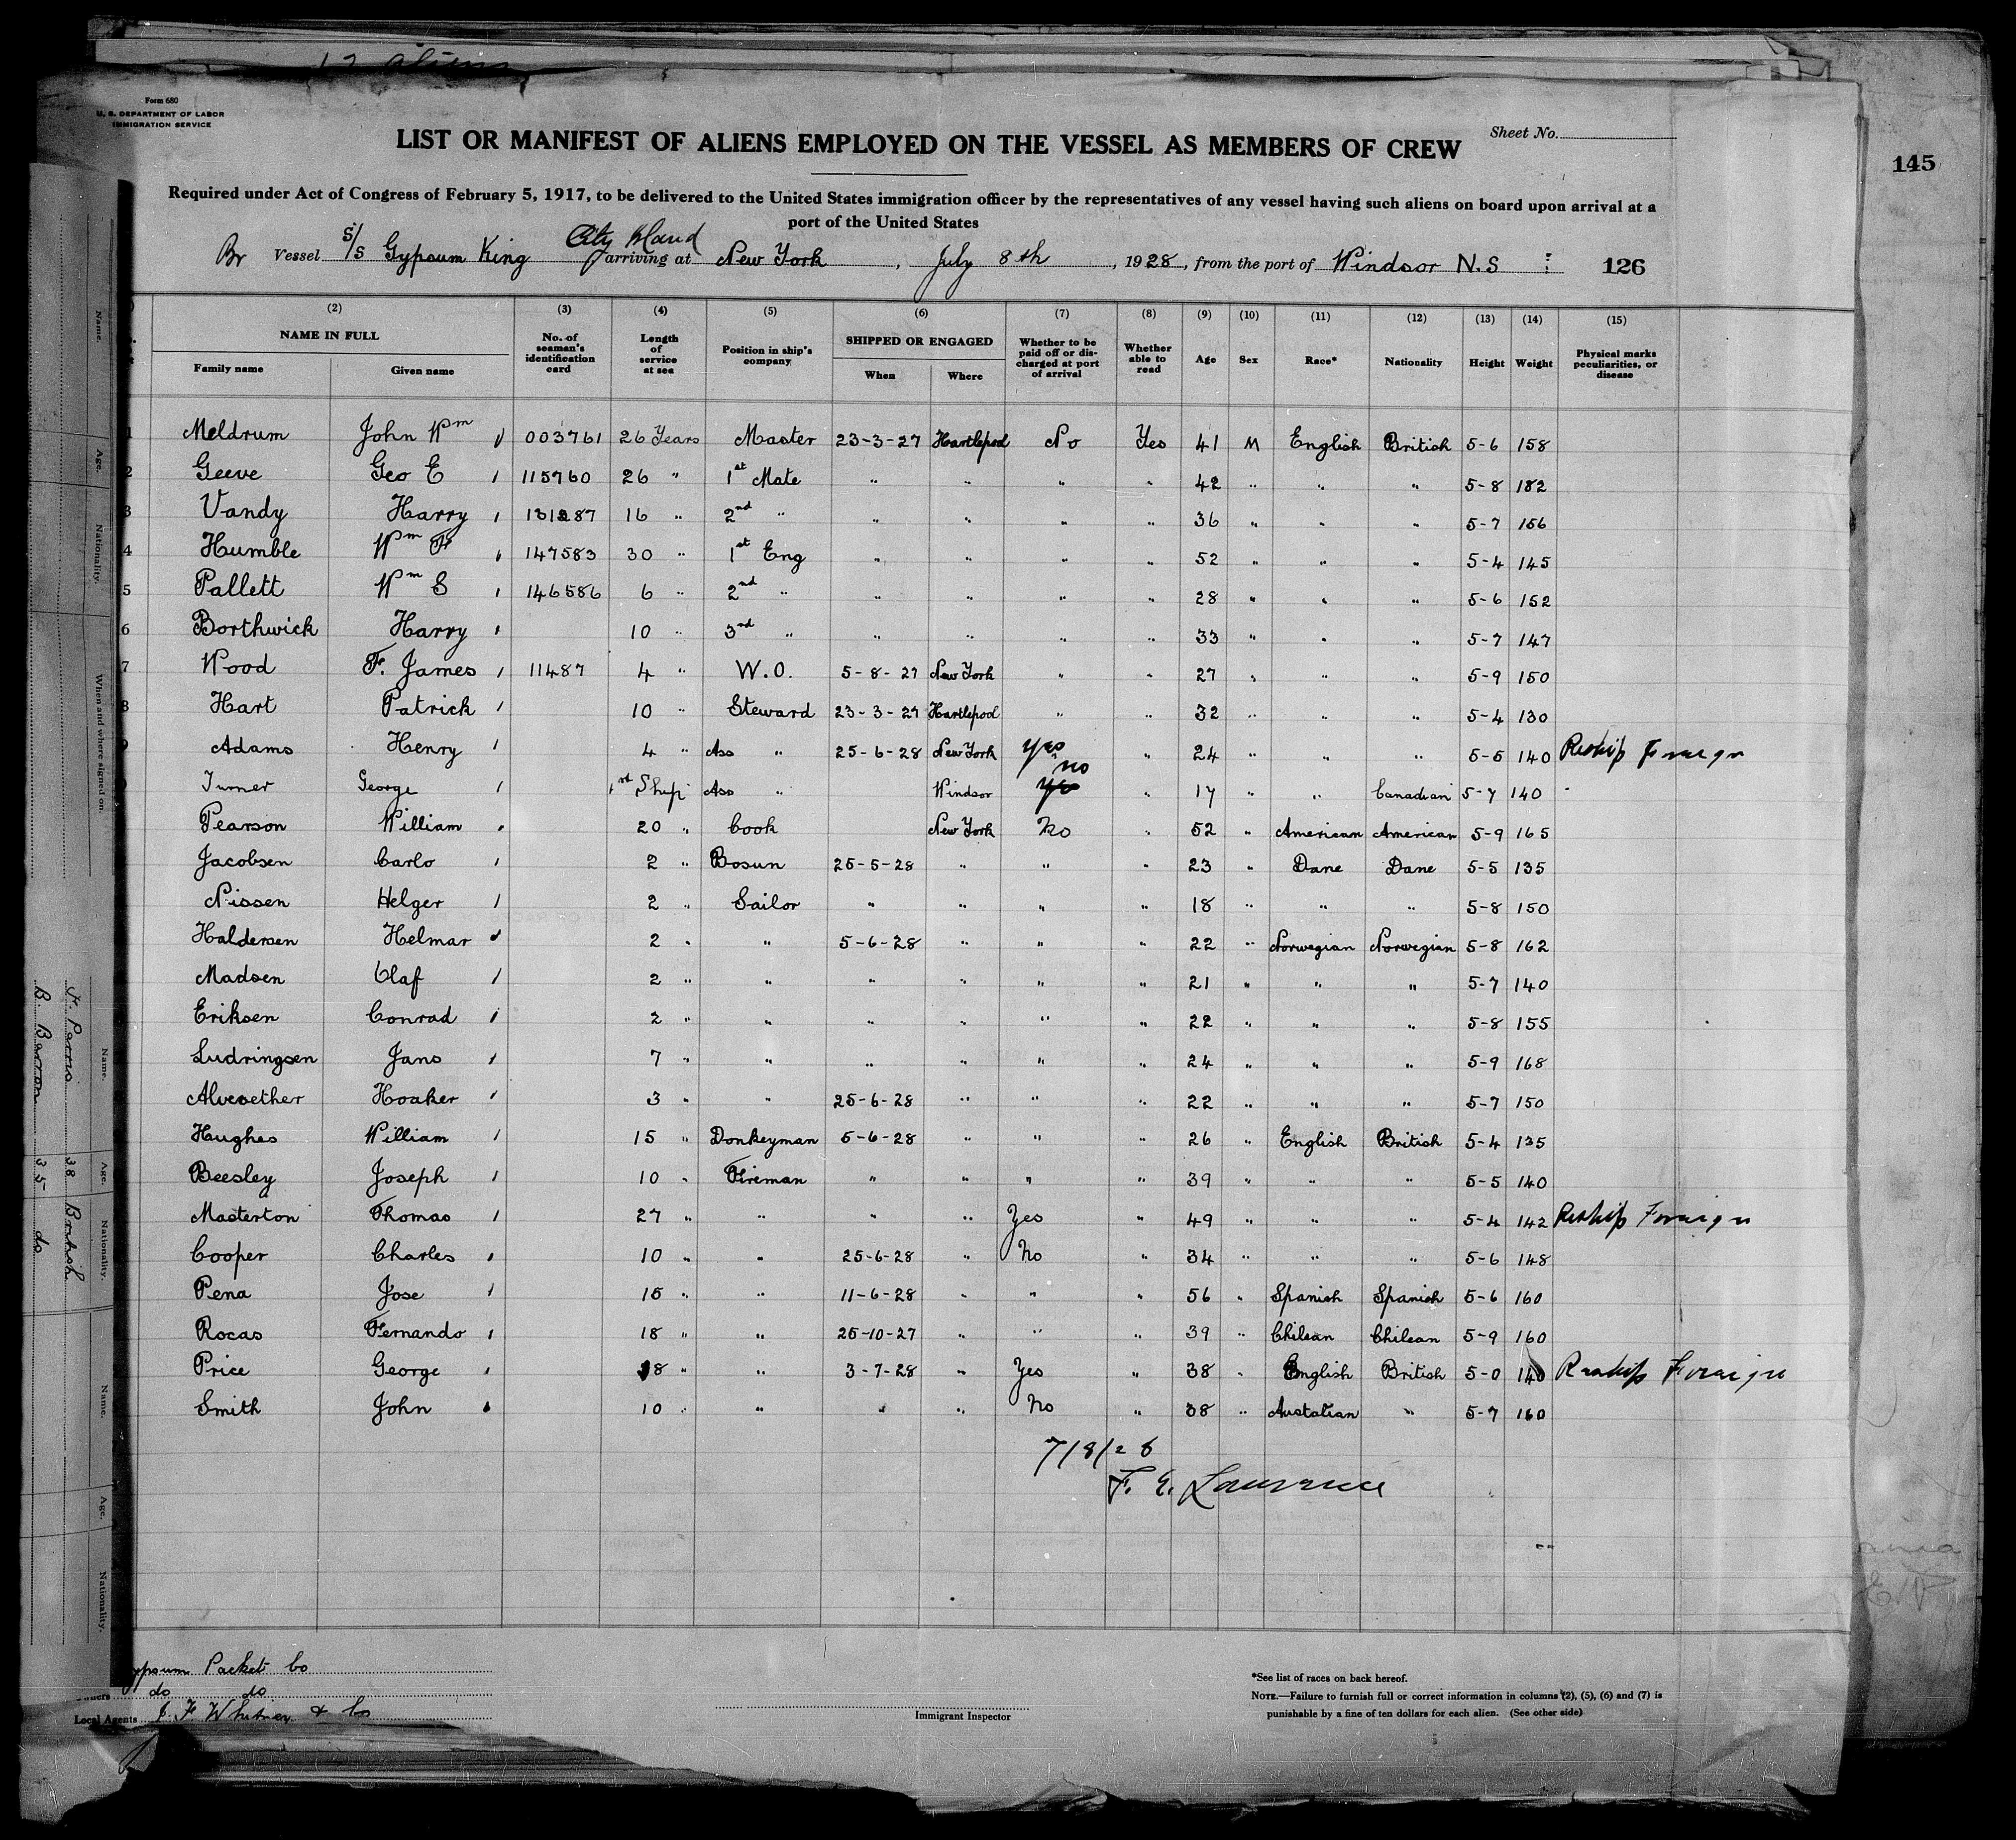 12 aliens
Form 680
U. S. DEPARTMENT OF LABOR
IMMIGRATION SERVICE
Sheet No.
LIST OR MANIFEST OF ALIENS EMPLOYED ON THE VESSEL AS MEMBERS OF CREW
145
Required under Act of Congress of February 5, 1917, to be delivered to the United States immigration officer by the representatives of any vessel having such aliens on board upon arrival at a
port of the United States
City Island
Br Vessel S/S Gypsum King arriving at New York, July 8th, 1928, from the port of Windsor N.S 126
(2) (3) (4) (5) (6) (7) (8) (9) (10) (11) (12) (13) (14) (15)
NAME IN FULL No. of seaman's identification card Length of service at sea Position in ship's company SHIPPED OR ENGAGED Whether to be paid off or discharged at port of arrival Whether able to read Age Sex Race* Nationality Height Weight Physical marks peculiarities, or disease
Family name Given name When Where
1 Meldrum John Wm 003761 26 Years Master 23-3-27 Hartlepool No Yes 41 M English British 5-6 158
2 Geeve Geo E 115760 26 " 1st Mate " " " " 42 " " " 5-8 182
3 Vandy Harry 131287 16 " 2nd " " " " " 36 " " " 5-7 156
4 Humble Wm F 147583 30 " 1st Eng " " " " 52 " " " 5-4 145
5 Pallett Wm S 146586 6 " 2nd " " " " " 28 " " " 5-6 152
6 Borthwick Harry 10 " 3rd " " " " " 33 " " " 5-7 147
7 Wood F. James 11487 4 " W.O. 5-8-27 New York " " 27 " " " 5-9 150
8 Hart Patrick 10 " Steward 23-3-27 Hartlepool " " 32 " " " 5-4 130
9 Adams Henry 4 " Ass " 25-6-28 New York Yes " 24 " " " 5-5 140 Reship Foreign
Turner George 1st Ship Ass " Windsor Yes no " 17 " " Canadian 5-7 140
Pearson William 20 " Cook New York No " 52 " American American 5-9 165
Jacobsen Carlo 2 " Bosun 25-5-28 " " " 23 " Dane Dane 5-5 135
Nissen Helger 2 " Sailor " " " " 18 " " " 5-8 150
Haldersen Helmar 2 " " 5-6-28 " " " 22 " Norwegian Norwegian 5-8 162
Madsen Olaf 2 " " " " " " 21 " " " 5-7 140
Eriksen Conrad 2 " " " " " " 22 " " " 5-8 155
Ludringsen Jans 7 " " " " " " 24 " " " 5-9 168
Alvesether Hoaker 3 " " 25-6-28 " " " 22 " " " 5-7 150
Hughes William 15 " Donkeyman 5-6-28 " " " 26 " English British 5-4 135
Beesley Joseph 10 " Fireman " " " " 39 " " " 5-5 140
Masterton Thomas 27 " " " " Yes " 49 " " " 5-4 142 Reship Foreign
Cooper Charles 10 " " 25-6-28 " No " 34 " " " 5-6 148
Pena Jose 15 " " 11-6-28 " " " 56 " Spanish Spanish 5-6 160
Rocas Fernando 18 " " 25-10-27 " " " 39 " Chilean Chilean 5-9 160
Price George 18 " " 3-7-28 " Yes " 38 " English British 5-0 140 Reship Foreign
Smith John 10 " " " " No " 38 " Austalian " 5-7 160
7/8/28
F. E. Lawrence
ypsum Packet Co
Owners do do
Local Agents J. F Whitney & Co
Immigrant Inspector
*See list of races on back hereof.
NOTE.—Failure to furnish full or correct information in columns (2), (5), (6) and (7) is
punishable by a fine of ten dollars for each alien. (See other side)
Name. Age. Nationality. When and where signed on.
Name. Age. Nationality.
Name. Age. Nationality.
F. Parris 38 British
B. Barron 35 do